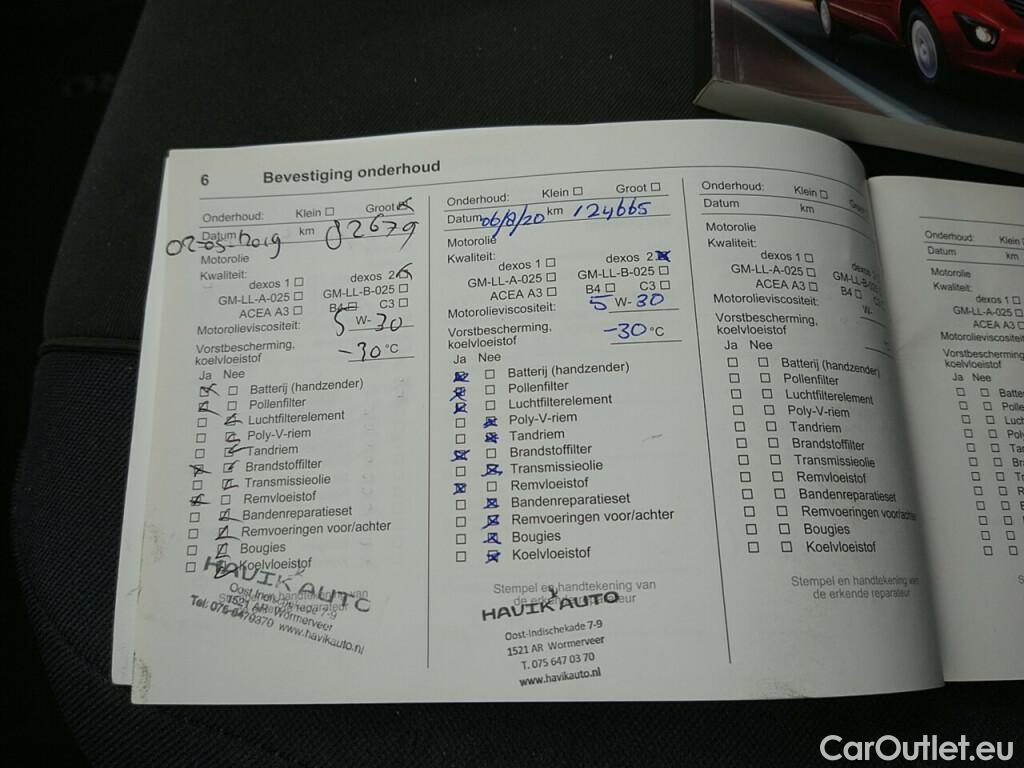 6 Bevestiging onderhoud
Onderhoud: Klein ☐ Groot ☒
Datum 02-05-2019 km 82679
Motorolie
Kwaliteit: dexos 1 ☐ dexos 2 ☒
GM-LL-A-025 ☐ GM-LL-B-025 ☐
ACEA A3 ☐ B4 ☐ C3 ☐
Motorolieviscositeit: 5 W-30
Vorstbescherming,
koelvloeistof -30 °C
Ja Nee
☒ ☐ Batterij (handzender)
☒ ☐ Pollenfilter
☐ ☒ Luchtfilterelement
☐ ☒ Poly-V-riem
☐ ☒ Tandriem
☒ ☐ Brandstoffilter
☐ ☒ Transmissieolie
☒ ☐ Remvloeistof
☐ ☒ Bandenreparatieset
☐ ☒ Remvoeringen voor/achter
☐ ☒ Bougies
☐ ☒ Koelvloeistof
HAVIK AUTO
1521 AR Wormerveer
Tel: 075-6470370 www.havikauto.nl
Onderhoud: Klein ☐ Groot ☐
Datum 06/8/20 km 124665
Motorolie
Kwaliteit: dexos 1 ☐ dexos 2 ☒
GM-LL-A-025 ☐ GM-LL-B-025 ☐
ACEA A3 ☐ B4 ☐ C3 ☐
Motorolieviscositeit: 5 W-30
Vorstbescherming,
koelvloeistof -30 °C
Ja Nee
☒ ☐ Batterij (handzender)
☒ ☐ Pollenfilter
☒ ☐ Luchtfilterelement
☐ ☒ Poly-V-riem
☐ ☒ Tandriem
☒ ☐ Brandstoffilter
☐ ☒ Transmissieolie
☒ ☐ Remvloeistof
☐ ☒ Bandenreparatieset
☐ ☒ Remvoeringen voor/achter
☐ ☒ Bougies
☐ ☒ Koelvloeistof
Stempel en handtekening van
de erkende reparateur
HAVIK AUTO
Oost-Indischekade 7-9
1521 AR Wormerveer
T. 075 647 03 70
www.havikauto.nl
Onderhoud: Klein ☐ Groot
Datum km
Motorolie
Kwaliteit: dexos 1 ☐
GM-LL-A-025 ☐
ACEA A3 ☐ B4 ☐ C3
Motorolieviscositeit: W-
Vorstbescherming,
koelvloeistof
Ja Nee
☐ ☐ Batterij (handzender)
☐ ☐ Pollenfilter
☐ ☐ Luchtfilterelement
☐ ☐ Poly-V-riem
☐ ☐ Tandriem
☐ ☐ Brandstoffilter
☐ ☐ Transmissieolie
☐ ☐ Remvloeistof
☐ ☐ Bandenreparatieset
☐ ☐ Remvoeringen voor/achter
☐ ☐ Bougies
☐ ☐ Koelvloeistof
Stempel en handtekening van
de erkende reparateur
Onderhoud: Klein
Datum km
Motorolie
Kwaliteit:
dexos 1 ☐
GM-LL-A-025 ☐
ACEA A3 ☐
Motorolieviscositeit
Vorstbescherming,
koelvloeistof
Ja Nee
CarOutlet.eu